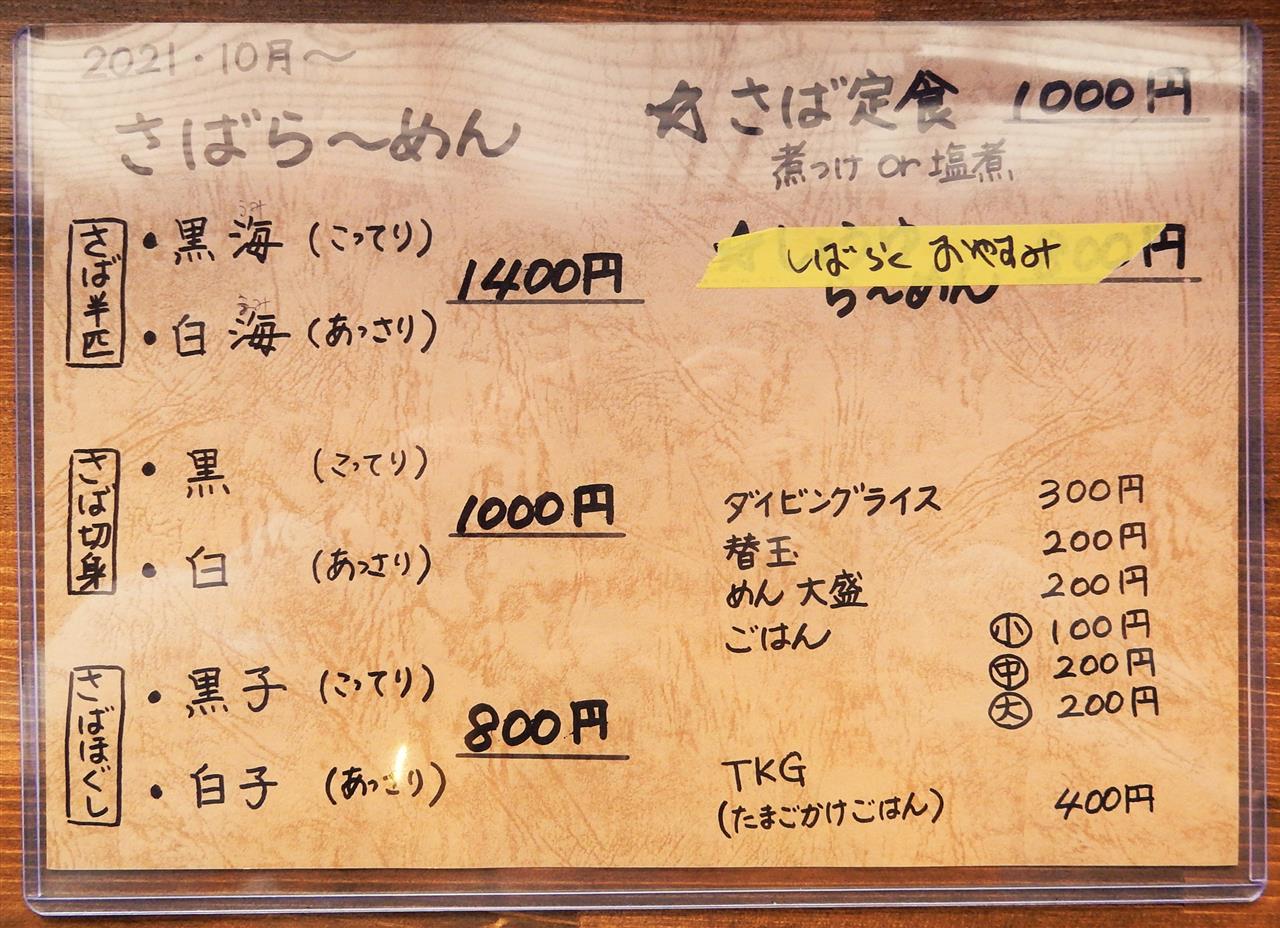 2021・10月〜
さばら〜めん
さば半匹
・黒海(こってり)
うみ
1400円
・白海(あっさり)
うみ
さば切身
・黒 (こってり)
1000円
・白 (あっさり)
さばほぐし
・黒子(こってり)
800円
・白子(あっさり)
☆さば定食 1000円
煮つけ or 塩煮
しばらく おやすみ
800円
ら〜めん
ダイビングライス 300円
替玉 200円
めん大盛 200円
ごはん ㊙小 100円
㊥ 200円
大 200円
TKG
(たまごかけごはん) 400円